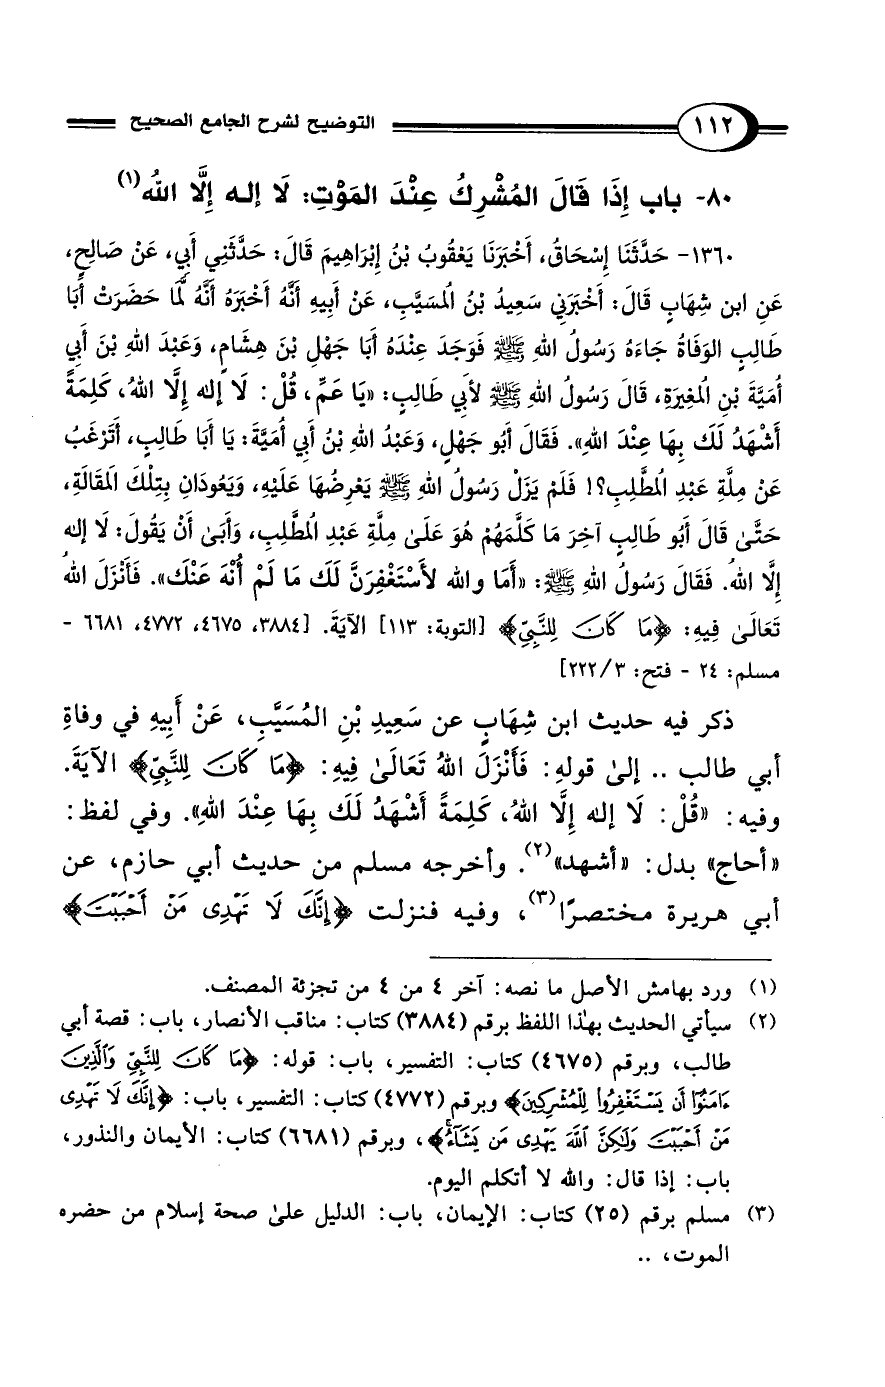 ١١٢ التوضيح لشرح الجامع الصحيح
٨٠- باب إِذَا قَالَ المُشْرِكُ عِنْدَ المَوْتِ: لَا إله إِلَّا اللهُ(١)
١٣٦٠- حَدَّثَنَا إِسْحَاقُ، أَخْبَرَنَا يَعْقُوبُ بْنُ إِبْرَاهِيمَ قَالَ: حَدَّثَنِي أَبِي، عَنْ صَالِحٍ،
عَنِ ابن شِهَابٍ قَالَ: أَخْبَرَنِي سَعِيدُ بْنُ الْمُسَيَّبِ، عَنْ أَبِيهِ أَنَّهُ أَخْبَرَهُ أَنَّهُ لَمَّا حَضَرَتْ أَبَا
طَالِبٍ الوَفَاةُ جَاءَهُ رَسُولُ اللهِ ﷺ فَوَجَدَ عِنْدَهُ أَبَا جَهْلِ بْنَ هِشَامٍ، وَعَبْدَ اللهِ بْنَ أَبِي
أُمَيَّةَ بْنِ الْمُغِيرَةِ، قَالَ رَسُولُ اللهِ ﷺ لأَبِي طَالِبٍ: «يَا عَمِّ، قُلْ: لَا إله إِلَّا اللهُ، كَلِمَةً
أَشْهَدُ لَكَ بِهَا عِنْدَ اللهِ». فَقَالَ أَبُو جَهْلٍ، وَعَبْدُ اللهِ بْنُ أَبِي أُمَيَّةَ: يَا أَبَا طَالِبٍ، أَتَرْغَبُ
عَنْ مِلَّةِ عَبْدِ الْمُطَّلِبِ؟! فَلَمْ يَزَلْ رَسُولُ اللهِ ﷺ يَعْرِضُهَا عَلَيْهِ، وَيَعُودَانِ بِتِلْكَ الْمَقَالَةِ،
حَتَّىٰ قَالَ أَبُو طَالِبٍ آخِرَ مَا كَلَّمَهُمْ هُوَ عَلَىٰ مِلَّةِ عَبْدِ الْمُطَّلِبِ، وَأَبَىٰ أَنْ يَقُولَ: لَا إله
إِلَّا اللهُ. فَقَالَ رَسُولُ اللهِ ﷺ: «أَمَا والله لأَسْتَغْفِرَنَّ لَكَ مَا لَمْ أُنْهَ عَنْكَ». فَأَنْزَلَ اللهُ
تَعَالَىٰ فِيهِ: ﴿مَا كَانَ لِلنَّبِيِّ﴾ [التوبة: ١١٣] الآيَةَ. [٣٨٨٤، ٤٦٧٥، ٤٧٧٢، ٦٦٨١ -
مسلم: ٢٤ - فتح: ٢٢٢/٣]
ذكر فيه حديث ابن شِهَابٍ عن سَعِيدِ بْنِ المُسَيَّبِ، عَنْ أَبِيهِ في وفاةِ
أبي طالب .. إلىٰ قولهِ: فَأَنْزَلَ اللهُ تَعَالَىٰ فِيهِ: ﴿مَا كَانَ لِلنَّبِيِّ﴾ الآيَةَ.
وفيه: «قُلْ: لَا إله إِلَّا اللهُ، كَلِمَةً أَشْهَدُ لَكَ بِهَا عِنْدَ اللهِ». وفي لفظ:
«أحاج» بدل: «أشهد»(٢). وأخرجه مسلم من حديث أبي حازم، عن
أبي هريرة مختصرًا(٣)، وفيه فنزلت ﴿إِنَّكَ لَا تَهْدِى مَنْ أَحْبَبْتَ﴾
(١) ورد بهامش الأصل ما نصه: آخر ٤ من ٤ من تجزئة المصنف.
(٢) سيأتي الحديث بهذا اللفظ برقم (٣٨٨٤) كتاب: مناقب الأنصار، باب: قصة أبي
طالب، وبرقم (٤٦٧٥) كتاب: التفسير، باب: قوله: ﴿مَا كَانَ لِلنَّبِيِّ وَٱلَّذِينَ
ءَامَنُوٓا۟ أَن يَسْتَغْفِرُوا۟ لِلْمُشْرِكِينَ﴾ وبرقم (٤٧٧٢) كتاب: التفسير، باب: ﴿إِنَّكَ لَا تَهْدِى
مَنْ أَحْبَبْتَ وَلَٰكِنَّ ٱللَّهَ يَهْدِى مَن يَشَآءُ﴾، وبرقم (٦٦٨١) كتاب: الأيمان والنذور،
باب: إذا قال: والله لا أتكلم اليوم.
(٣) مسلم برقم (٢٥) كتاب: الإيمان، باب: الدليل علىٰ صحة إسلام من حضره
الموت، ..